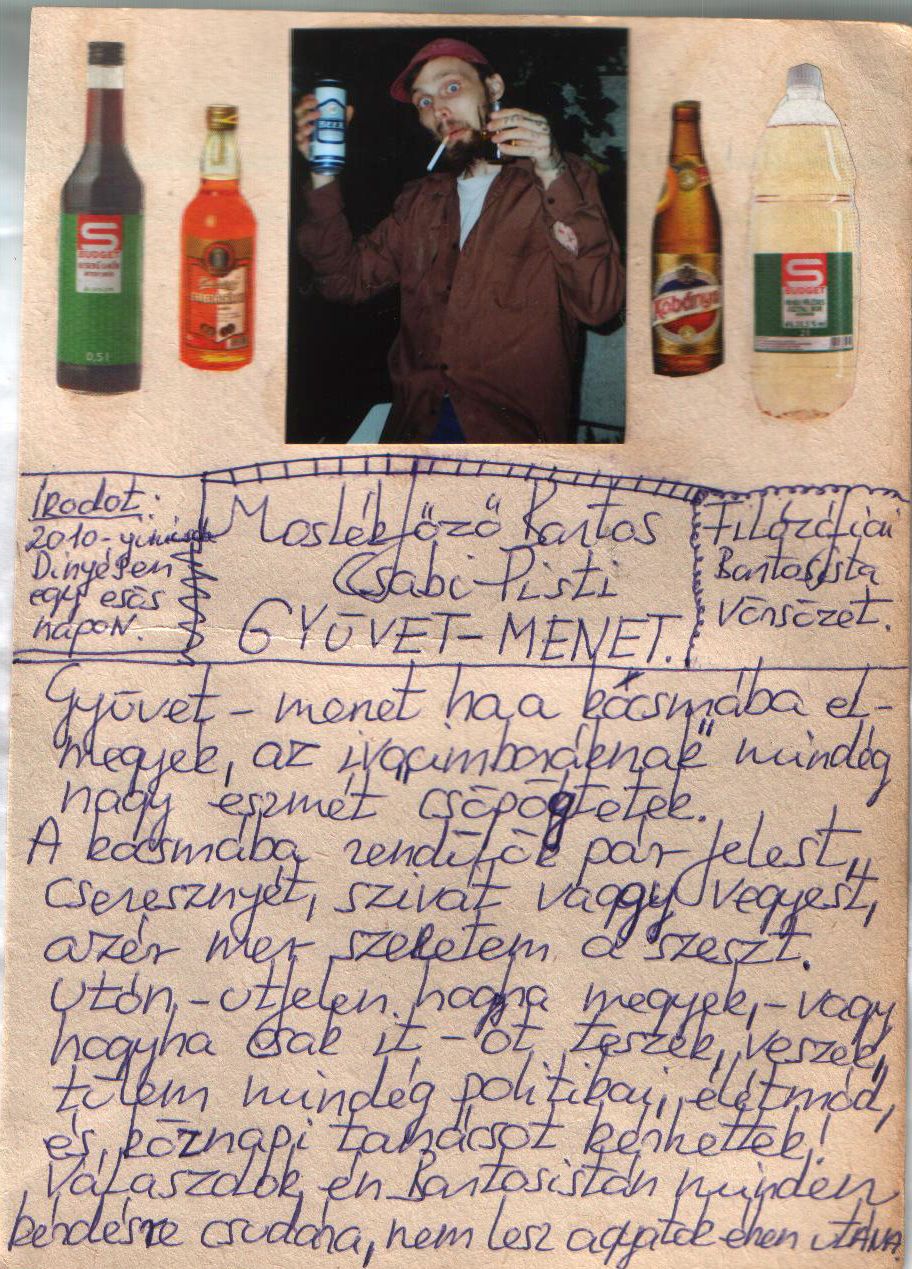 S
BUDGET
0,5 l
Kőbányai
S
BUDGET
Irodot:
2010-
Dinyésen
egy esős
napon.
Moslékfőző Kantos
Csabi-Pisti
GYŪVET-MENET.
Filózófiai
Bantosista
Vörsözet.
Gyūvet - menet ha a kocsmába el-
megyek, az ivócimboráknak" mindég
nagy "eszmét csöpögtetek.
A kocsmába rendítők pár feles't,
cseresznyét, szívát vaggy vegyest,
azér mer szeretem a szeszt.
Utón,-utfelen hogha megyek,-vagy
hogyha csak it - ot teszek, veszek,
tūlem mindég politikai, életmód,
és köznapi tanácsot kérhettek!
Válaszolok én Bantosistán minden
kérdésre csudára, nem lesz agyatok éhen utÁNA.